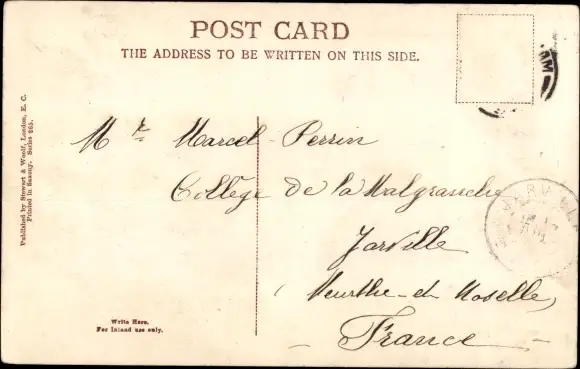 POST CARD
THE ADDRESS TO BE WRITTEN ON THIS SIDE.
AM
Mr Marcel Perrin
Collège de la Malgrange
Jarville
(Meurthe-et-Moselle)
France
Published by Stewart & Woolf, London, E. C.
Printed in Saxony. Series 265.
Write Here.
For Inland use only.